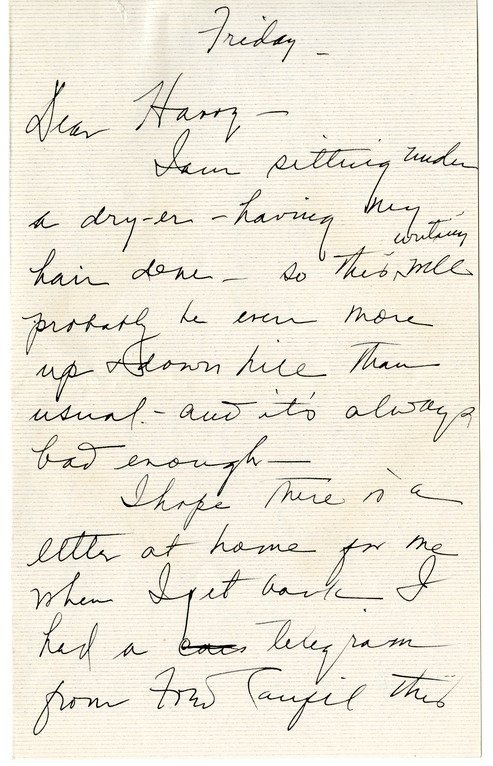 Friday -
Dear Harry -
I am sitting under
a dry-er - having my
writing
hair done - so this will
probably be even more
up & down hill than
usual - and it's always
bad enough -
I hope there is a
letter at home for me
when I get back I
had a telegram
from this